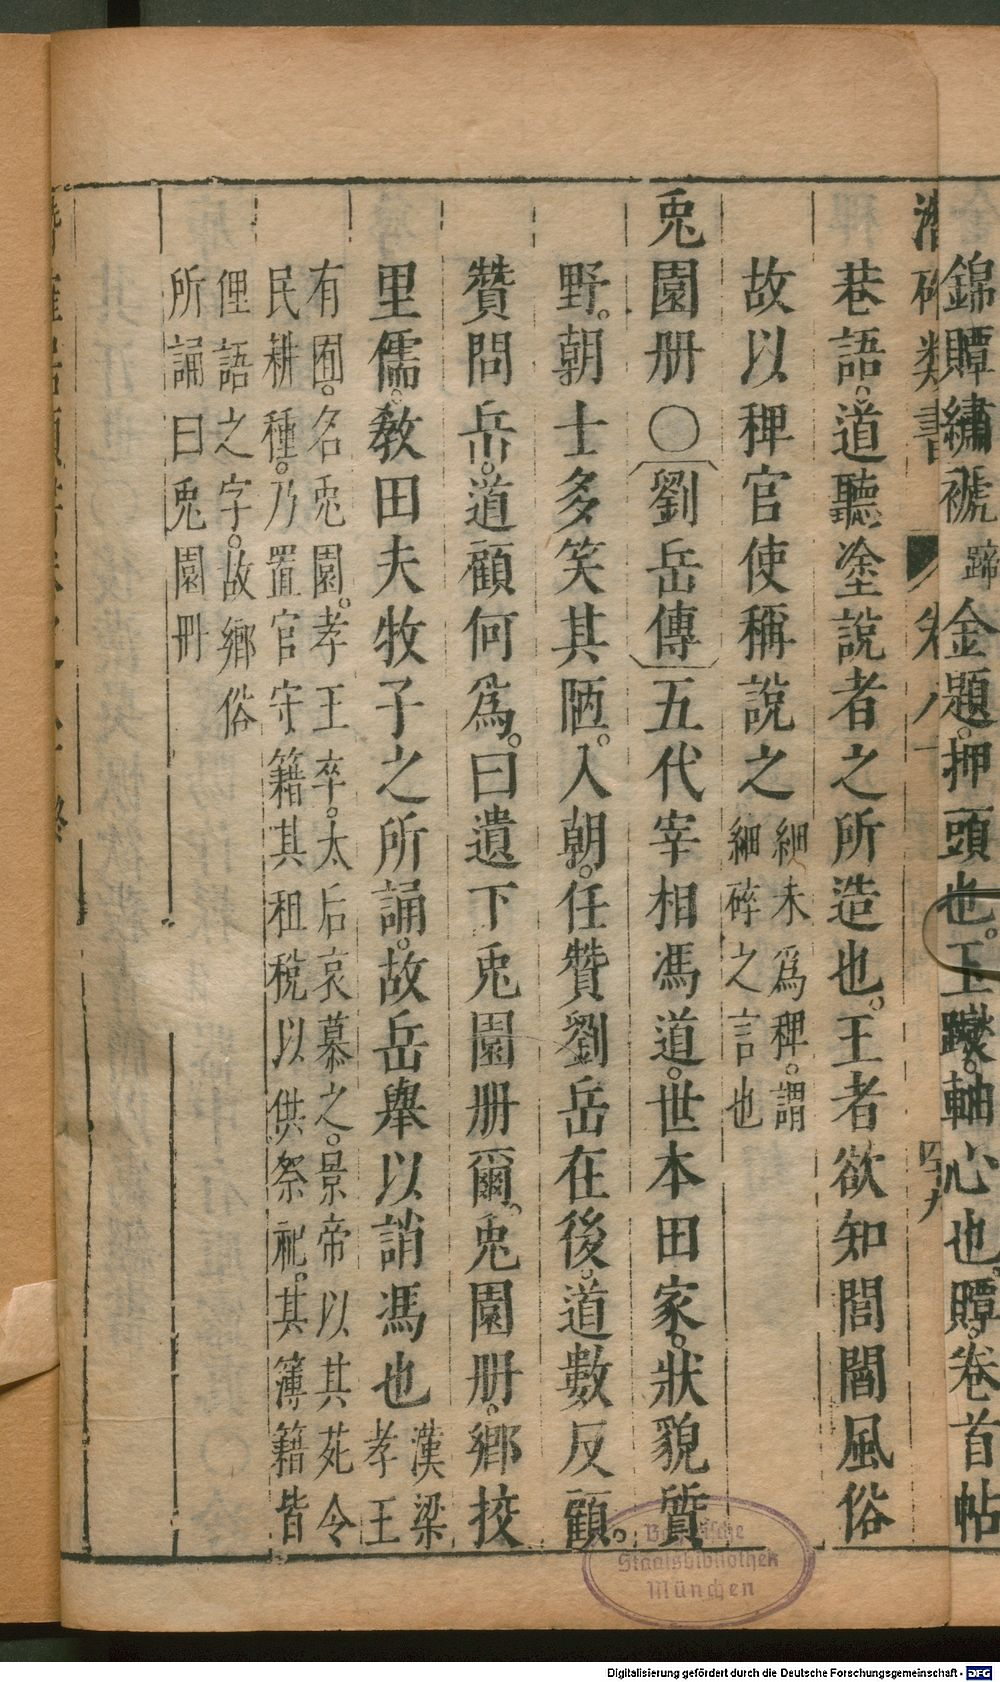 錦贉繡褫蹄金題。押頭也。玉躞。軸心也。贉。卷首帖
類書
四十九
巷語。道聽塗說者之所造也。王者欲知閭閻風俗
故以稗官使稱說之細未為稗。謂細碎之言也
兎園册〇劉岳傳五代宰相馮道。世本田家。狀貌質
野。朝士多笑其陋。入朝。任贊劉岳在後。道數反顧。
贊問岳。道顧何爲。曰遺下兎園册爾。兎園册。鄉挍
里儒。教田夫牧子之所誦。故岳舉以誚馮也漢梁孝王
有囿。名兎園。孝王卒。太后哀慕之。景帝以其苑令
民耕種。乃置官守籍其租稅以供祭祀。其簿籍皆
俚語之字。故鄉俗
所誦曰兎園册
Bayerische
Staatsbibliothek
München
Digitalisierung gefördert durch die Deutsche Forschungsgemeinschaft - DFG